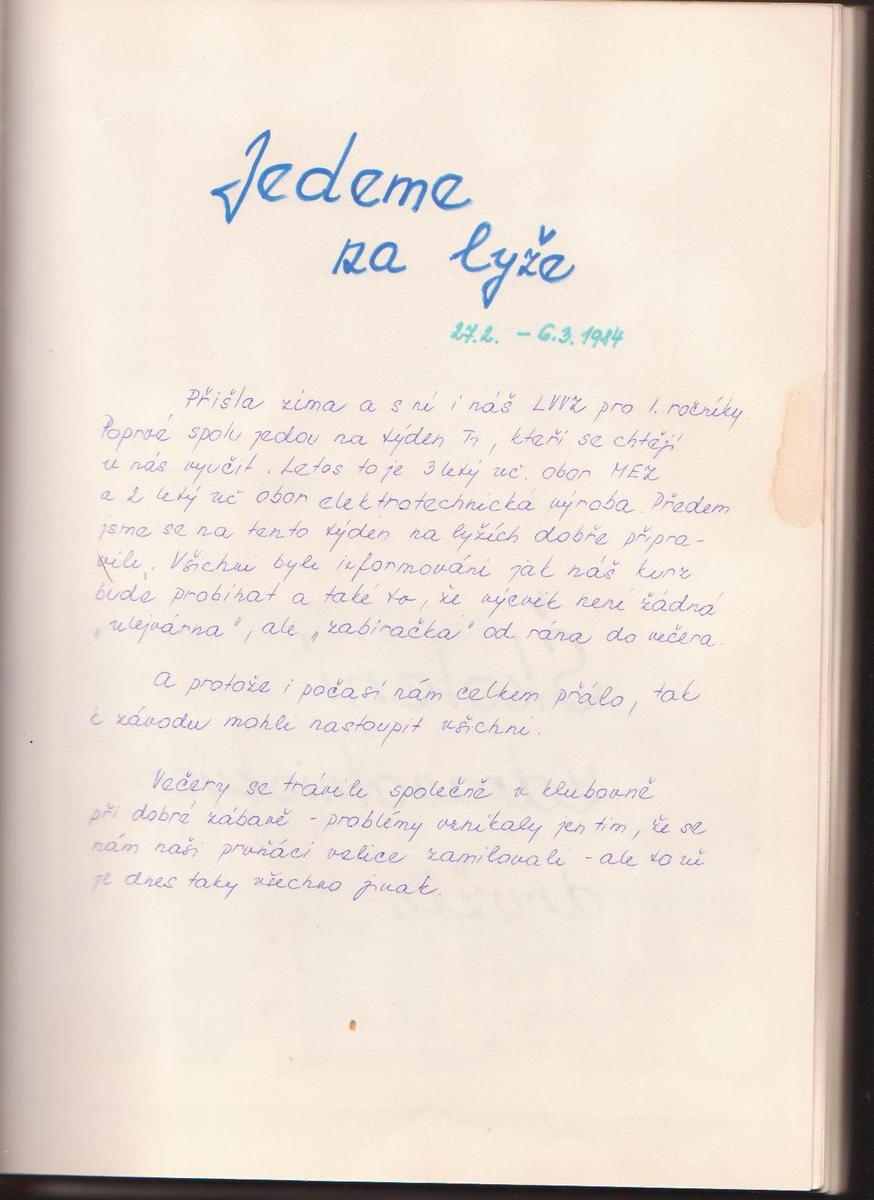 Jedeme
na lyže
27.2. - 6.3.1984
Přišla zima a s ní i náš LVVZ pro 1. ročníky.
Poprvé spolu jedou na týden Ti, kteří se chtějí
u nás vyučit. Letos to je 3letý uč. obor MEZ
a 2 letý uč obor elektrotechnická výroba. Předem
jsme se na tento týden na lyžích dobře připra-
vili. Všichni byli informováni jak náš kurz
bude probíhat a také to, že výcvik není žádná
„ulejvárna", ale „zabíračka" od rána do večera.
A protože i počasí nám celkem přálo, tak
k závodu mohli nastoupit všichni.
Večery se trávili společně v klubovně
při dobré zábavě - problémy vznikaly jen tím, že se
nám naši prvňáci velice zamilovali - ale to už
je dnes taky všechno jinak.